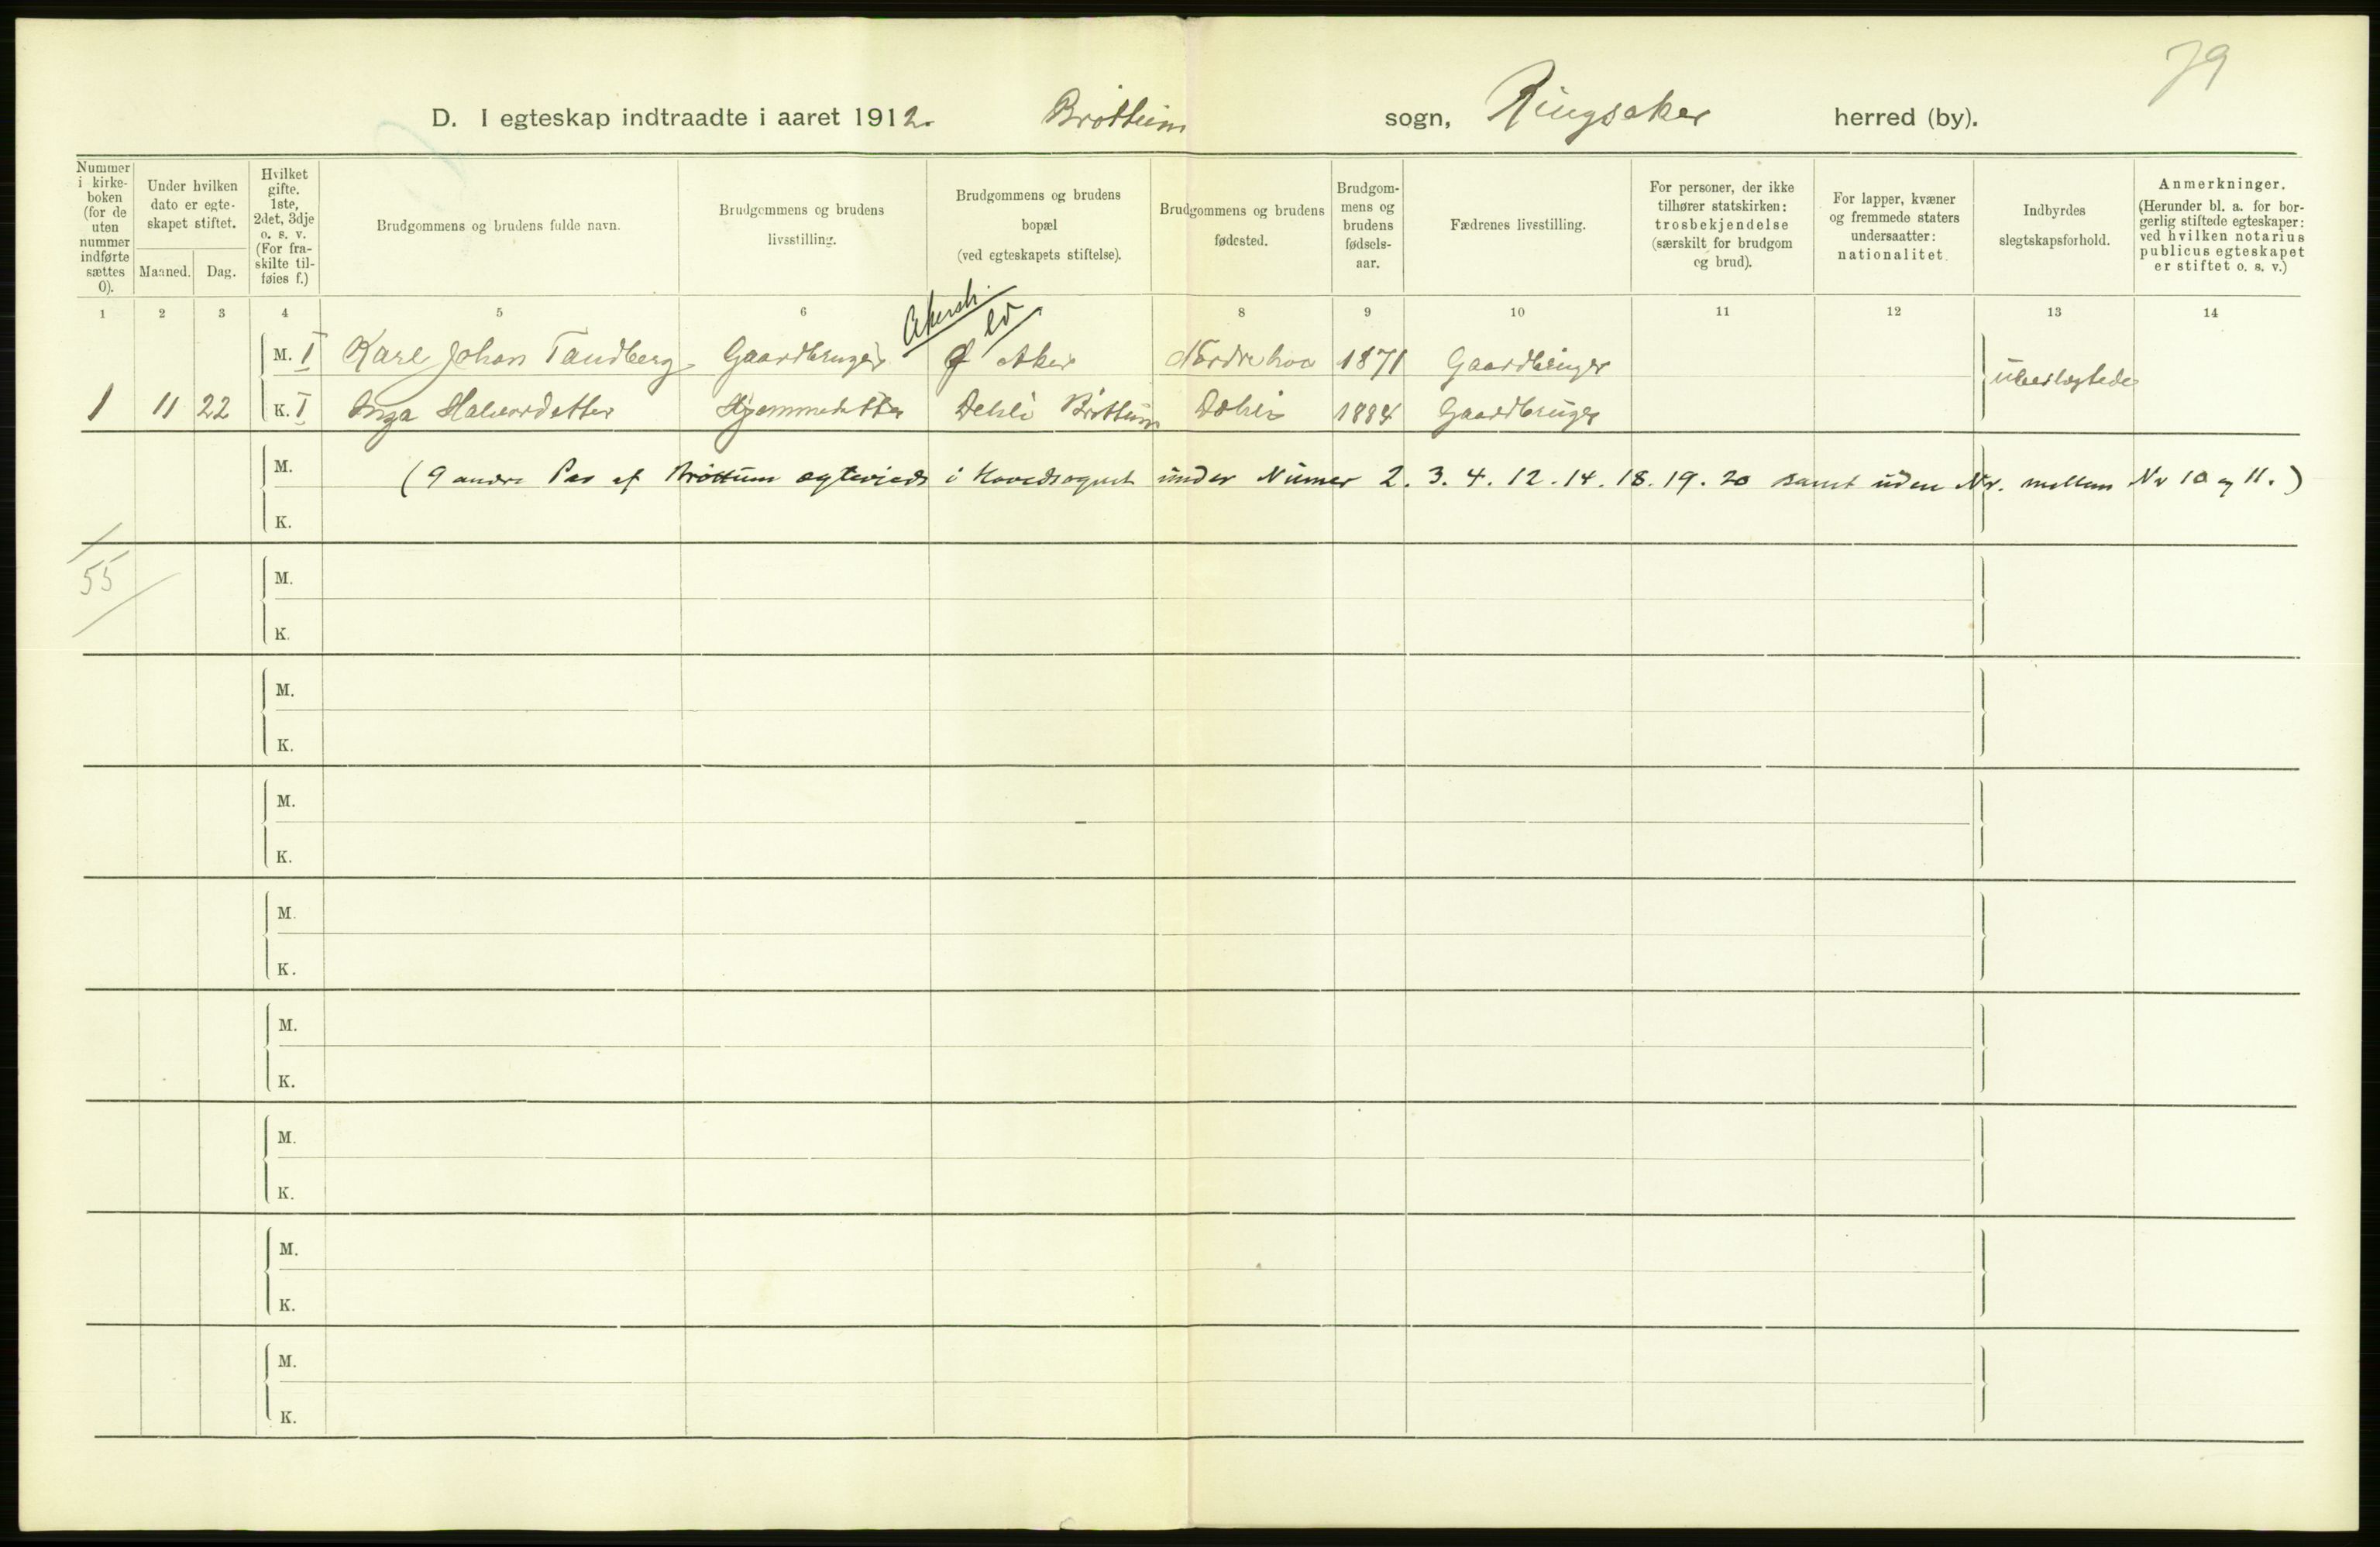 79
D. I egteskap indtraadte i aaret 1912. Brøttum sogn, Ringsaker herred (by).
Nummer i kirke-boken (for de uten nummer indførte sættes 0).
Under hvilken dato er egte-skapet stiftet.
Maaned. Dag.
Hvilket gifte. 1ste, 2det, 3dje o. s. v. (For fra-skilte til-føies f.)
Brudgommens og brudens fulde navn.
Brudgommens og brudens livsstilling.
Brudgommens og brudens bopæl (ved egteskapets stiftelse).
Brudgommens og brudens fødested.
Brudgom-mens og brudens fødsels-aar.
Fædrenes livsstilling.
For personer, der ikke tilhører statskirken: trosbekjendelse (særskilt for brudgom og brud).
For lapper, kvæner og fremmede staters undersaatter: nationalitet.
Indbyrdes slegtskapsforhold.
Anmerkninger. (Herunder bl. a. for bor-gerlig stiftede egteskaper: ved hvilken notarius publicus egteskapet er stiftet o. s. v.)
1 2 3 4 5 6 8 9 10 11 12 13 14
Akersh.
M. I Karl Johan Tandberg Gaardbruger Aker Nordrehov 1871 Gaardbruger
ubeslegtede
1 11 22 K. I Inga Halvordatter Hjemmedatter Dehli Brøttum Dehli 1884 Gaardbruger
M. (9 andre Par af Brøttum egteviede i Hovedsognet under Numer 2. 3. 4. 12. 14. 18. 19. 20 samt uden Nr. mellem Nr 10 og 11.)
K.
55
M.
K.
M.
K.
M.
K.
M.
K.
M.
K.
M.
K.
M.
K.
M.
K.